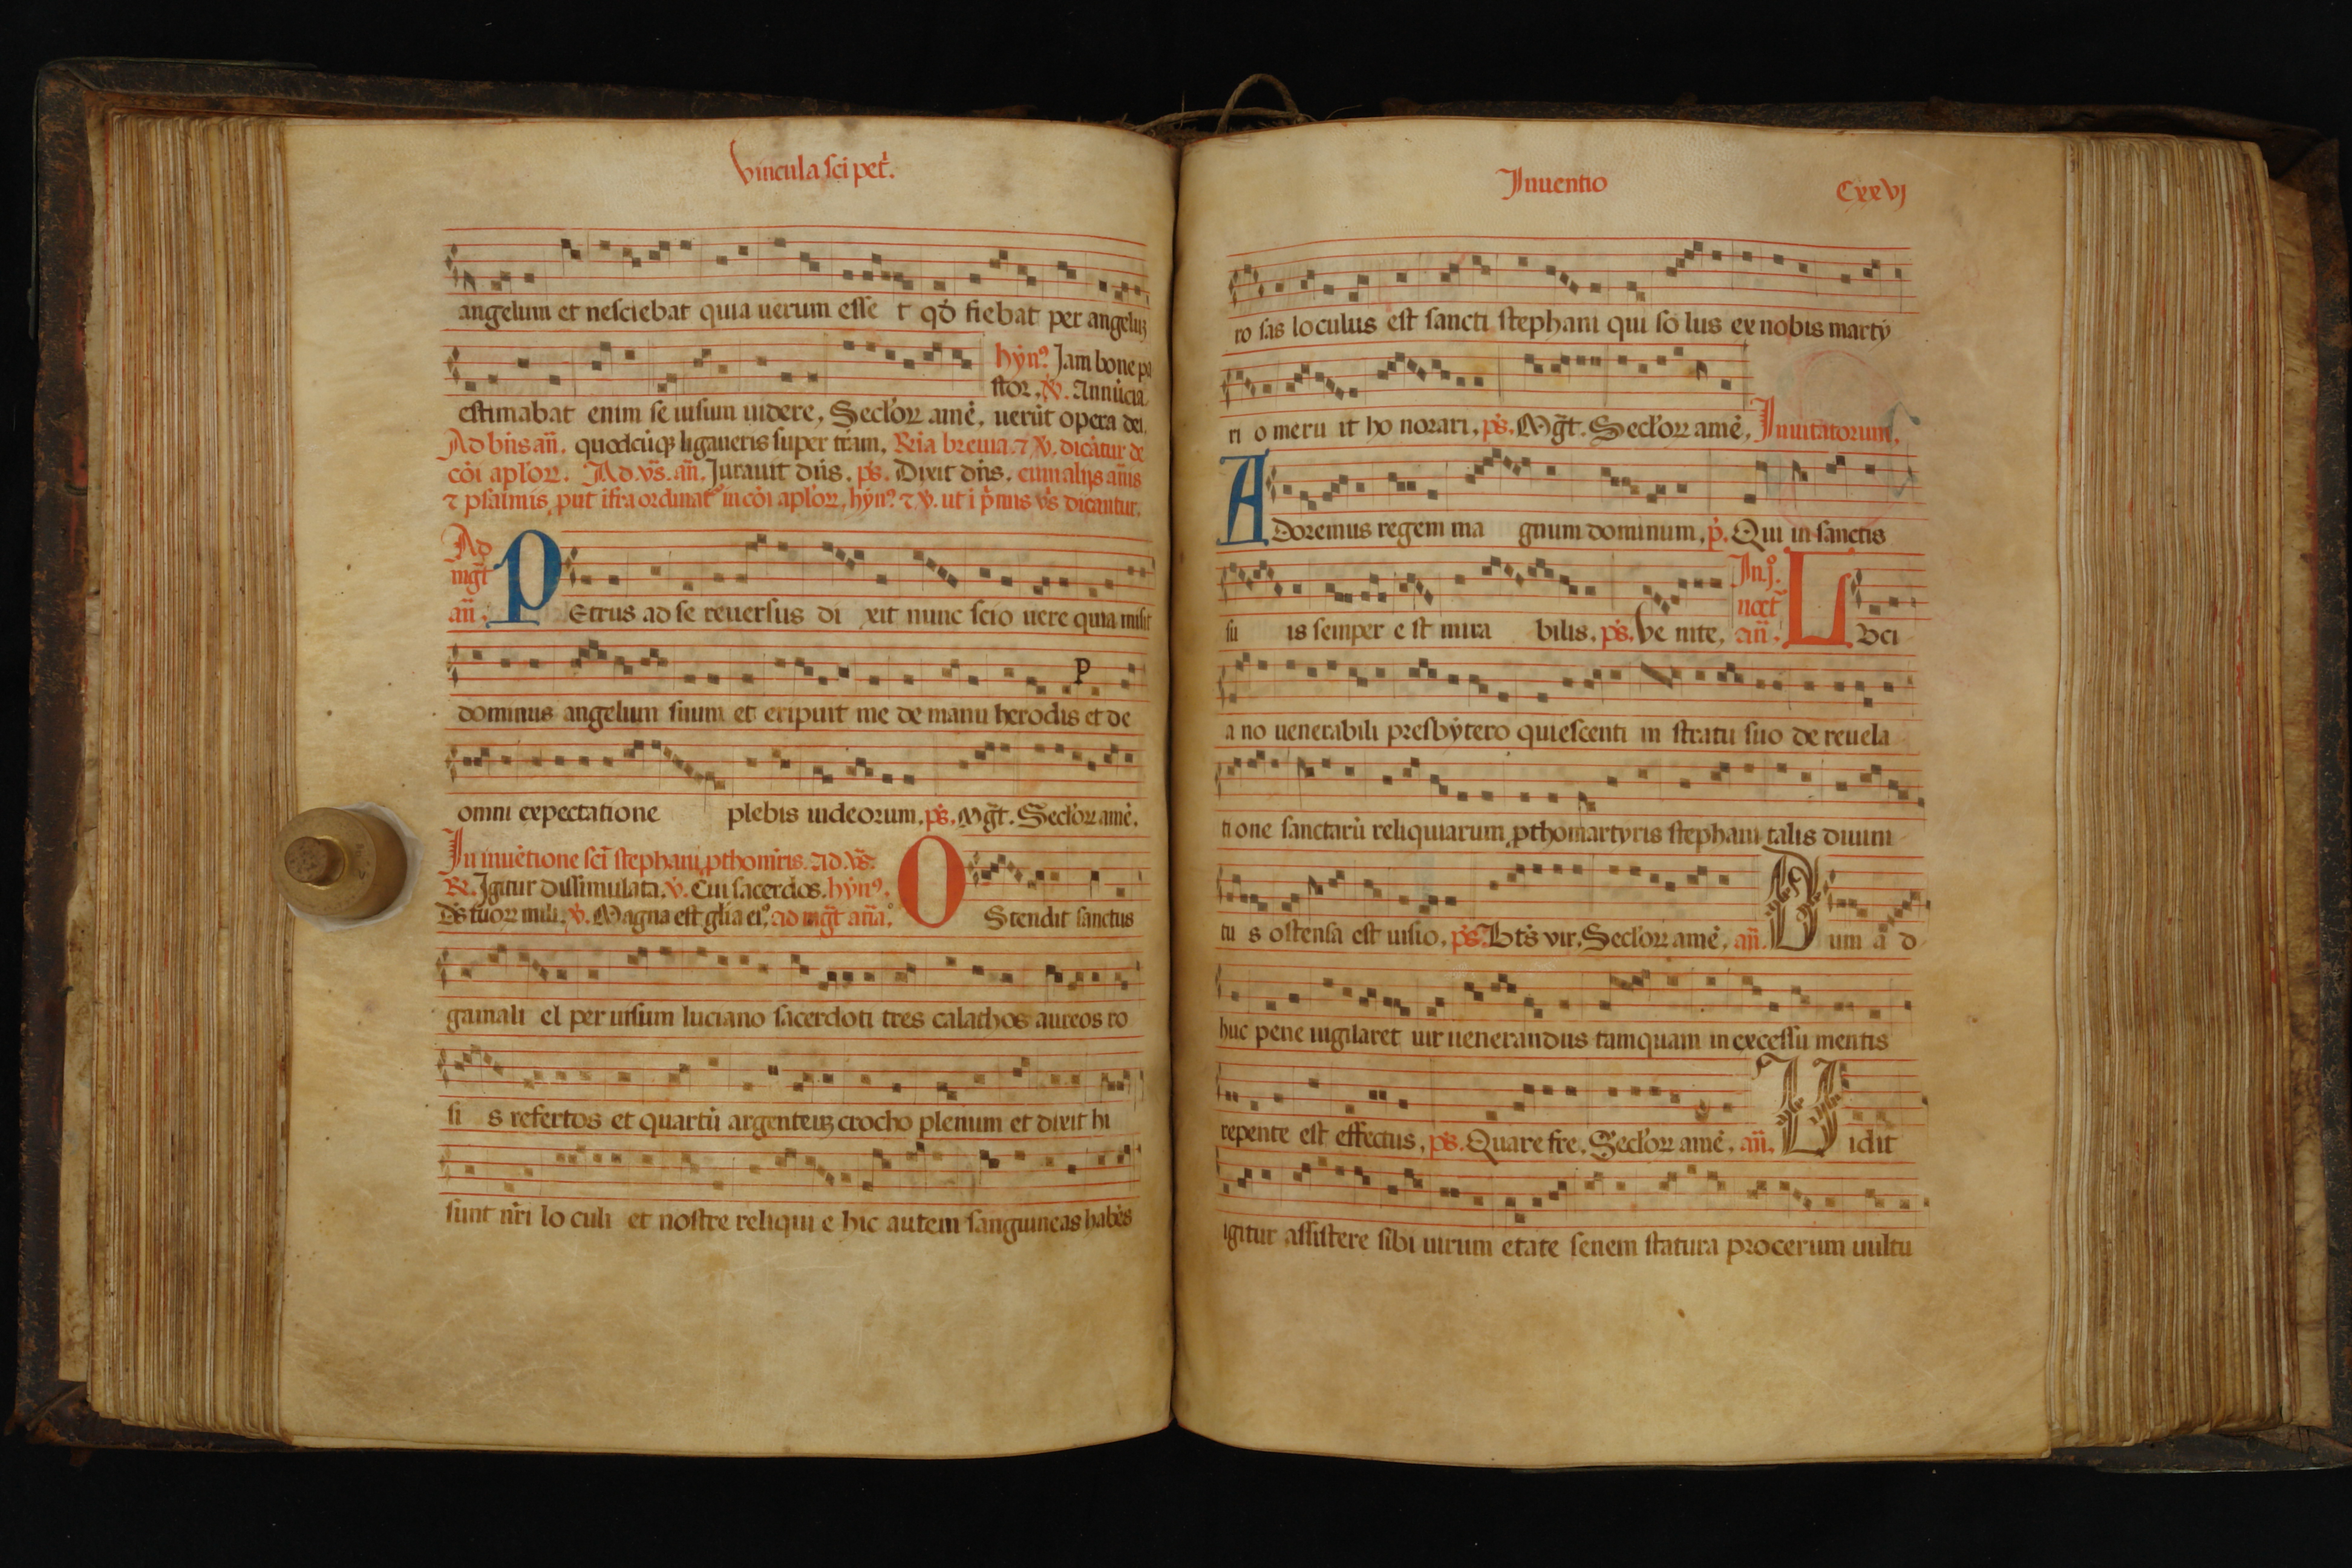 vincula sci pet᷑.
angelum et nesciebat quia uerum esse t qđ fiebat per angeluȝ
hẏn᷒. Jam bone pa
stor. ꝟ. Annūcia
estimabat enim se uisum uidere. Secl'oꝝ amē. uerūt opera dei.
Ad bn̄s an̄. quodcūqꝫ ligaueris super tr̄am. R̄ia breuia. ⁊ ꝟ. dicātur de
cōi apl'oꝝ. Ad. vs̄. an̄. Jurauit dn̄s. ps̄. Dixit dn̄s. cum alijs an̄is
⁊ psalmis ꝓut īfra ordinat᷑ in cōi apl'oꝝ. hẏn᷒. ⁊ ꝟ. ut i p̄mis vs̄ dicantur.
Ad
mgt̄
an̄.
PEtrus ad se reuersus di xit nunc scio uere quia misit
dominus angelum suum et eripuit me de manu herodis et de
omni expectatione plebis iudeorum. ps̄. Mgt̄. Secl'oꝝ amē.
In inuētione sci̅ stephani ꝓthom̄ris. ad vs̄.
R. Igitur dissimulata. ꝟ. Cui sacerdos. hẏn᷒.
Ds̄ tuoꝝ mili. ꝟ. Magna est gl'ia ei᷒. ad mgt̄ an̄a.
OStendit sanctus
gamali el per uisum luciano sacerdoti tres calathos aureos ro
si s refertos et quartū argenteuȝ crocho plenum et dixit hi
sunt nr̄i lo culi et nostre reliqui e hic autem sanguineas habēs
Inuentio
Cxxvj
ro sas loculus est sancti stephani qui so lus ex nobis martẏ
ri o meru it ho norari. ps̄. Mgt̄. Secl'oꝝ amē. Inuitatorium.
ADoremus regem ma gnum dominum. p̄. Qui in sanctis
su is semper e st mira bilis. ps̄. Ve nite.
In. j᷒.
noct᷑
an̄.
LVci
a no uenerabili presbẏtero quiescenti in stratu suo de reuela
ti one sanctarū reliquiarum ꝓthomartyris stephani talis diuini
tu s ostensa est uisio. ps̄. Bt̄s vir. Secl'oꝝ amē. an̄. Dum a d
huc pene uigilaret uir uenerandus tamquam in excessu mentis
repente est effectus. ps̄. Quare fre. Secl'oꝝ amē. an̄. Uidit
igitur assistere sibi uirum etate senem statura procerum uultu